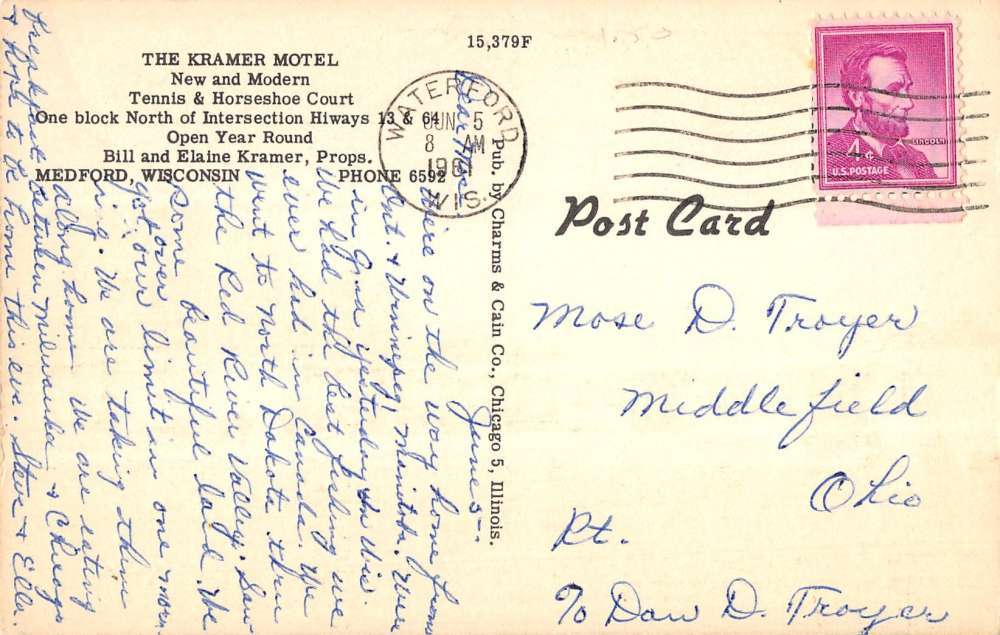 15,379F
THE KRAMER MOTEL
New and Modern
Tennis & Horseshoe Court
One block North of Intersection Hiways 13 & 64
Open Year Round
Bill and Elaine Kramer, Props.
MEDFORD, WISCONSIN PHONE 6592
WATERFORD
JUN 5
8 AM
1961
WIS.
LINCOLN
4c
U.S. POSTAGE
Post Card
Pub. by Charms & Cain Co., Chicago 5, Illinois.
June 5 -
Dear Mose
We're on the way home from
Ont. & Winnipeg, Manitoba. Were
in yesterday in Wis.
We had the best fishing we
ever had in Canada. We
went to North Dakota thru
the Red River Valley. Saw
some beautiful land. We
got our limit in one morn-
ing. We are taking them
along home. We are eating
breakfast between Milwauke & Chicago
& hope to be home this eve. Steve & Ella.
Mose D. Troyer
Middlefield
Ohio
Rt.
c/o Dan D. Troyer